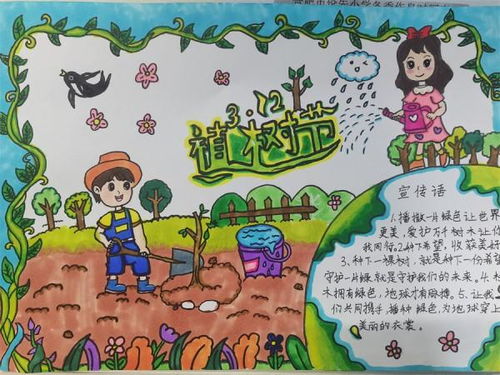 3.12
植树节
宣传语
1.播撒一片绿色让世界
更美,爱护万千树木让你
我同行。2.种下希望,收获美好
3.种下一棵树,就是种下一份希望
守护一片绿就是守护我们的未来。4.
木拥有绿色,地球才有脉搏。5.让我
们共同携手,播种绿色,为地球穿上
美丽的衣裳。